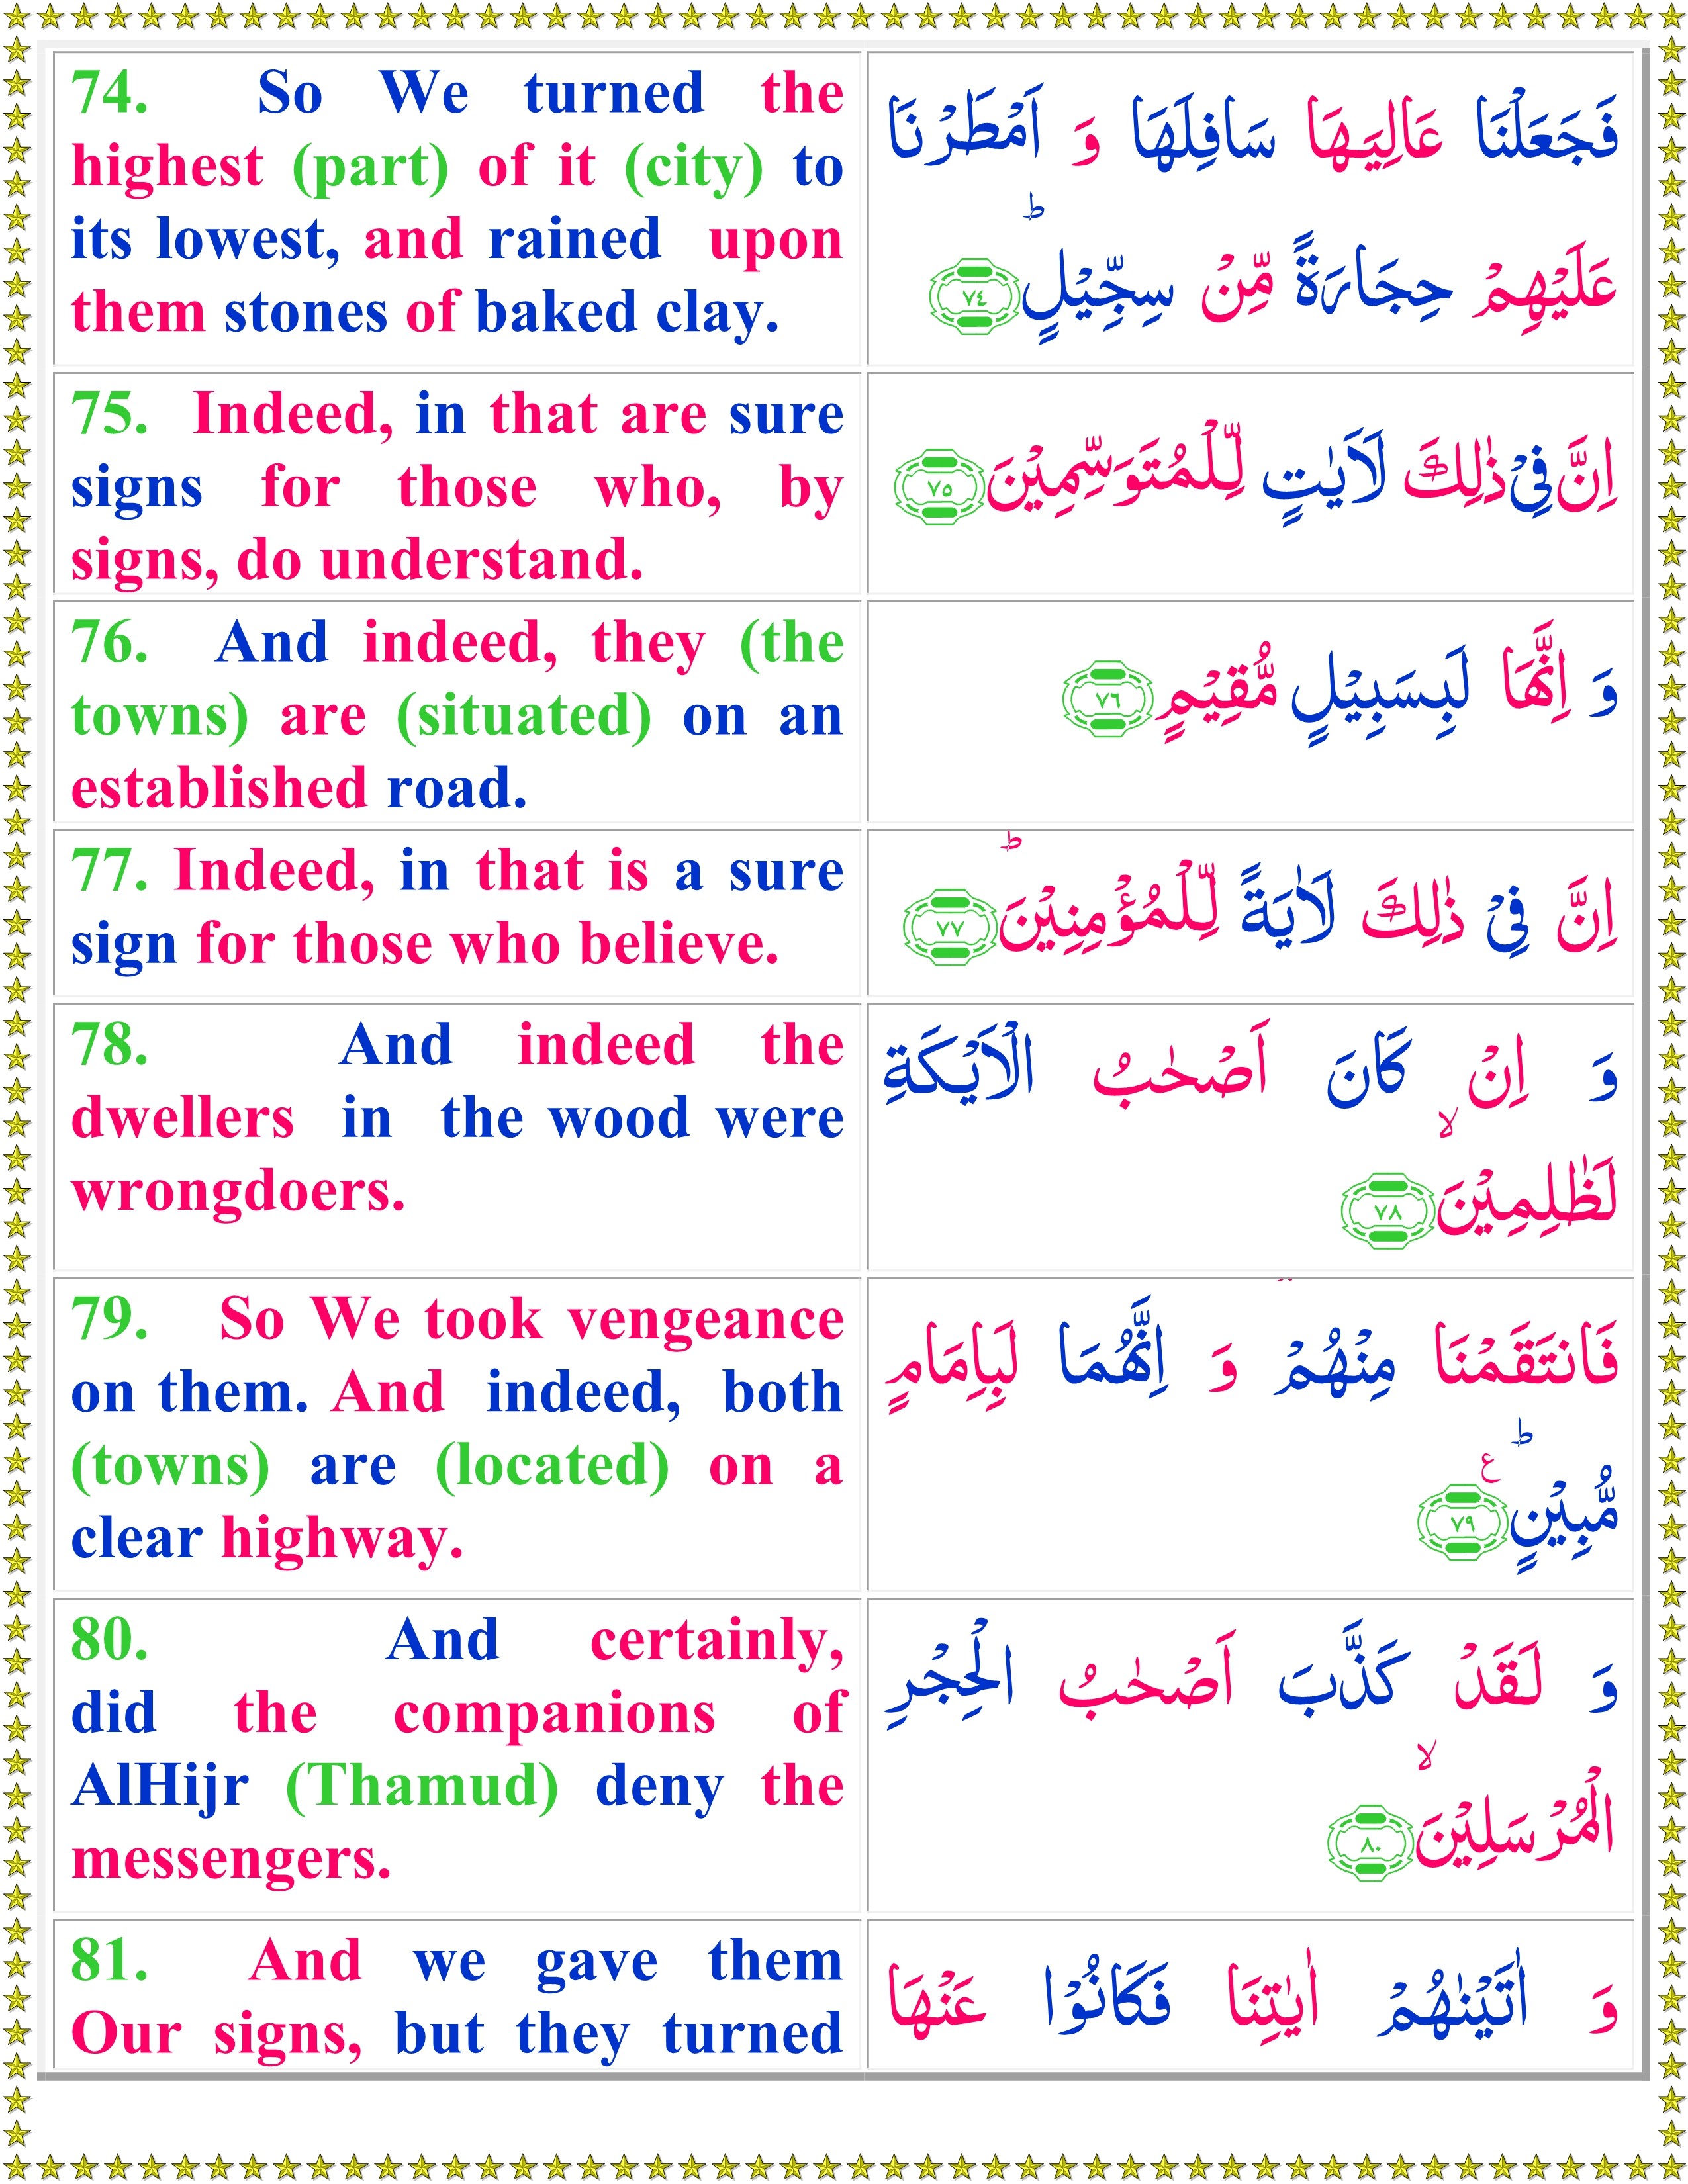 74. So We turned the
highest (part) of it (city) to
its lowest, and rained upon
them stones of baked clay.
فَجَعَلْنَا عَالِيَهَا سَافِلَهَا وَ اَمْطَرْنَا
عَلَيْهِمْ حِجَارَةً مِّنْ سِجِّيْلٍؕ ﴿٧٤﴾
75. Indeed, in that are sure
signs for those who, by
signs, do understand.
اِنَّ فِىْ ذٰلِكَ لَاَيٰتٍ لِّلْمُتَوَسِّمِيْنَ ﴿٧٥﴾
76. And indeed, they (the
towns) are (situated) on an
established road.
وَ اِنَّهَا لَبِسَبِيْلٍ مُّقِيْمٍ ﴿٧٦﴾
77. Indeed, in that is a sure
sign for those who believe.
اِنَّ فِىْ ذٰلِكَ لَاٰيَةً لِّلْمُؤْمِنِيْنَؕ ﴿٧٧﴾
78. And indeed the
dwellers in the wood were
wrongdoers.
وَ اِنْ كَانَ اَصْحٰبُ الْاَيْكَةِ
لَظٰلِمِيْنَۙ ﴿٧٨﴾
79. So We took vengeance
on them. And indeed, both
(towns) are (located) on a
clear highway.
فَانتَقَمْنَا مِنْهُمْۘ وَ اِنَّهُمَا لَبِاِمَامٍ
مُّبِيْنٍؕ ع ﴿٧٩﴾
80. And certainly,
did the companions of
AlHijr (Thamud) deny the
messengers.
وَ لَقَدْ كَذَّبَ اَصْحٰبُ الْحِجْرِ
الْمُرْسَلِيْنَۙ ﴿٨٠﴾
81. And we gave them
Our signs, but they turned
وَ اٰتَيْنٰهُمْ اٰيٰتِنَا فَكَانُوْا عَنْهَا